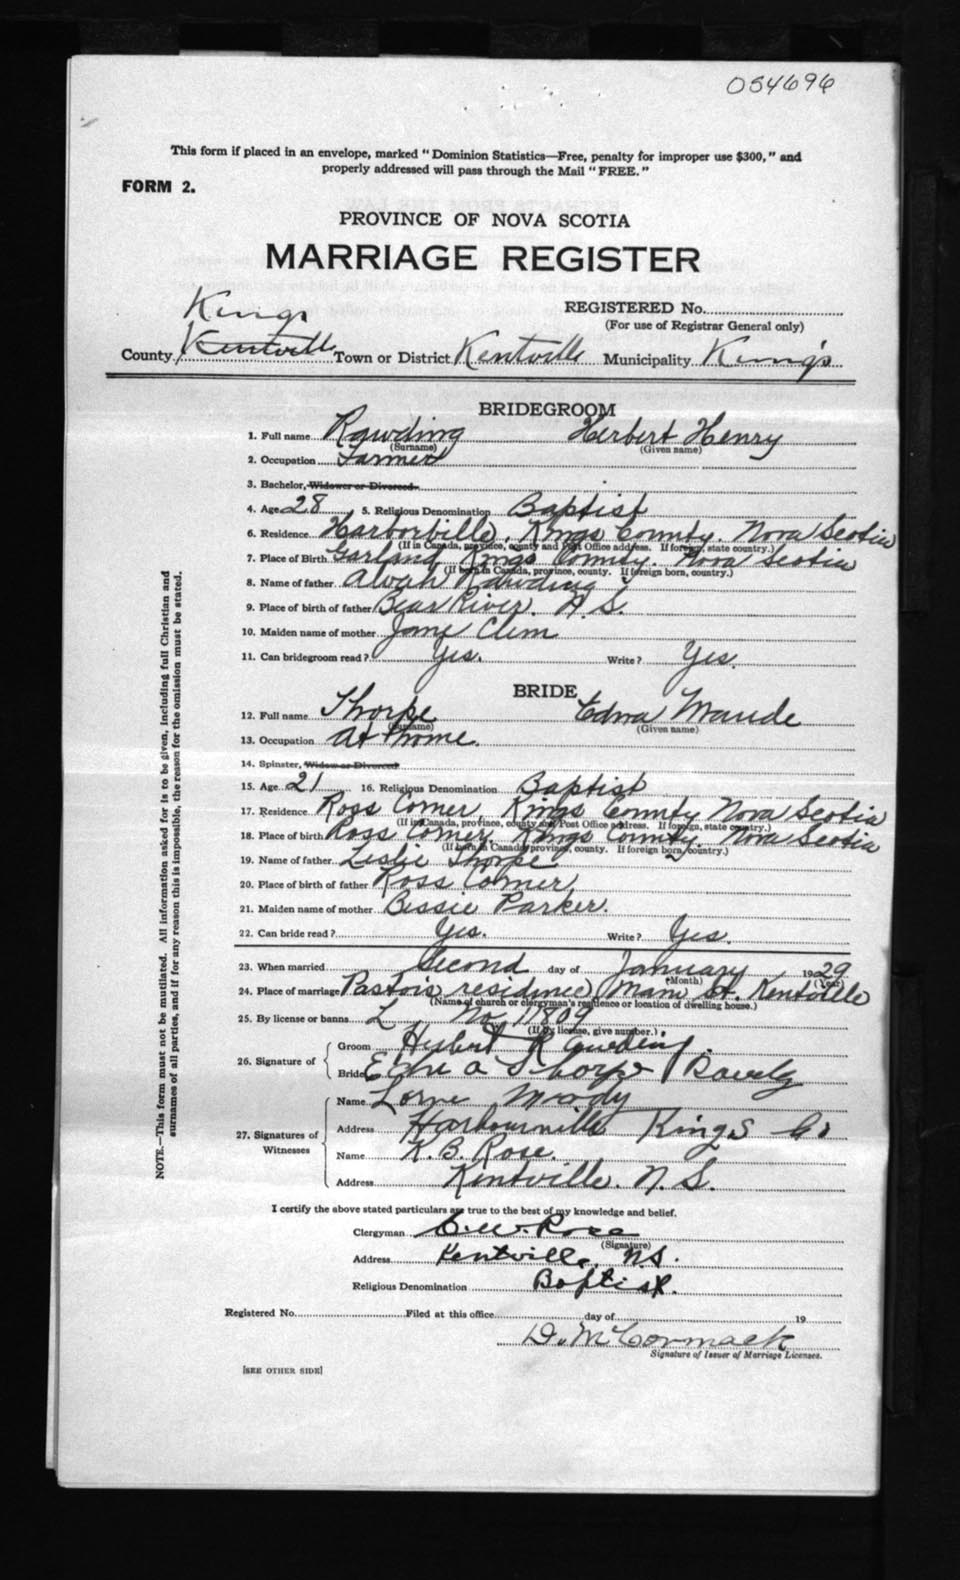 054696
This form if placed in an envelope, marked "Dominion Statistics—Free, penalty for improper use $300," and
properly addressed will pass through the Mail "FREE."
FORM 2.
PROVINCE OF NOVA SCOTIA
MARRIAGE REGISTER
Kings
REGISTERED No.
(For use of Registrar General only)
County Kentville Town or District Kentville Municipality Kings
BRIDEGROOM
1. Full name Rawding Herbert Henry
(Surname) (Given name)
2. Occupation Farmer
3. Bachelor, Widower or Divorced
4. Age 28 5. Religious Denomination Baptist
6. Residence Harborville, Kings County. Nova Scotia
(If in Canada, province, county and Post Office address. If foreign, state country.)
7. Place of Birth Garland, Kings County. Nova Scotia
(If born in Canada, province, county. If foreign born, country.)
8. Name of father Alvah Rawding
9. Place of birth of father Bear River. N.S.
10. Maiden name of mother Jane Clem
11. Can bridegroom read? Yes. Write? Yes.
BRIDE
12. Full name Thorpe Edna Maude
(Surname) (Given name)
13. Occupation At home.
14. Spinster, Widow or Divorced
15. Age 21 16. Religious Denomination Baptist
17. Residence Ross Corner, Kings County Nova Scotia
(If in Canada, province, county and Post Office address. If foreign, state country.)
18. Place of birth Ross Corner, Kings County. Nova Scotia
(If born in Canada, province, county. If foreign born, country.)
19. Name of father Leslie Thorpe
20. Place of birth of father Ross Corner,
21. Maiden name of mother Bessie Parker.
22. Can bride read? Yes. Write? Yes.
23. When married Second day of January 1929
(Month) (Year)
24. Place of marriage Pastors residence, Main St. Kentville
(Name of church or clergyman's residence or location of dwelling house.)
25. By license or banns L No. 17809
(If by license, give number.)
26. Signature of
Groom Herbert Rawding.
Bride Edna Thorpe
27. Signatures of Witnesses
Name Lorne Moody
Address Harbourville Kings Co
Name K.B. Rose.
Address Kentville. N.S.
I certify the above stated particulars are true to the best of my knowledge and belief.
Clergyman C.W. Rose
(Signature)
Address Kentville, N.S.
Religious Denomination Baptist.
Registered No. Filed at this office day of 19
D. McCormack
Signature of Issuer of Marriage Licenses.
[SEE OTHER SIDE]
NOTE.—This form must not be mutilated. All information asked for is to be given, including full Christian and
surnames of all parties, and if for any reason this is impossible, the reason for the omission must be stated.